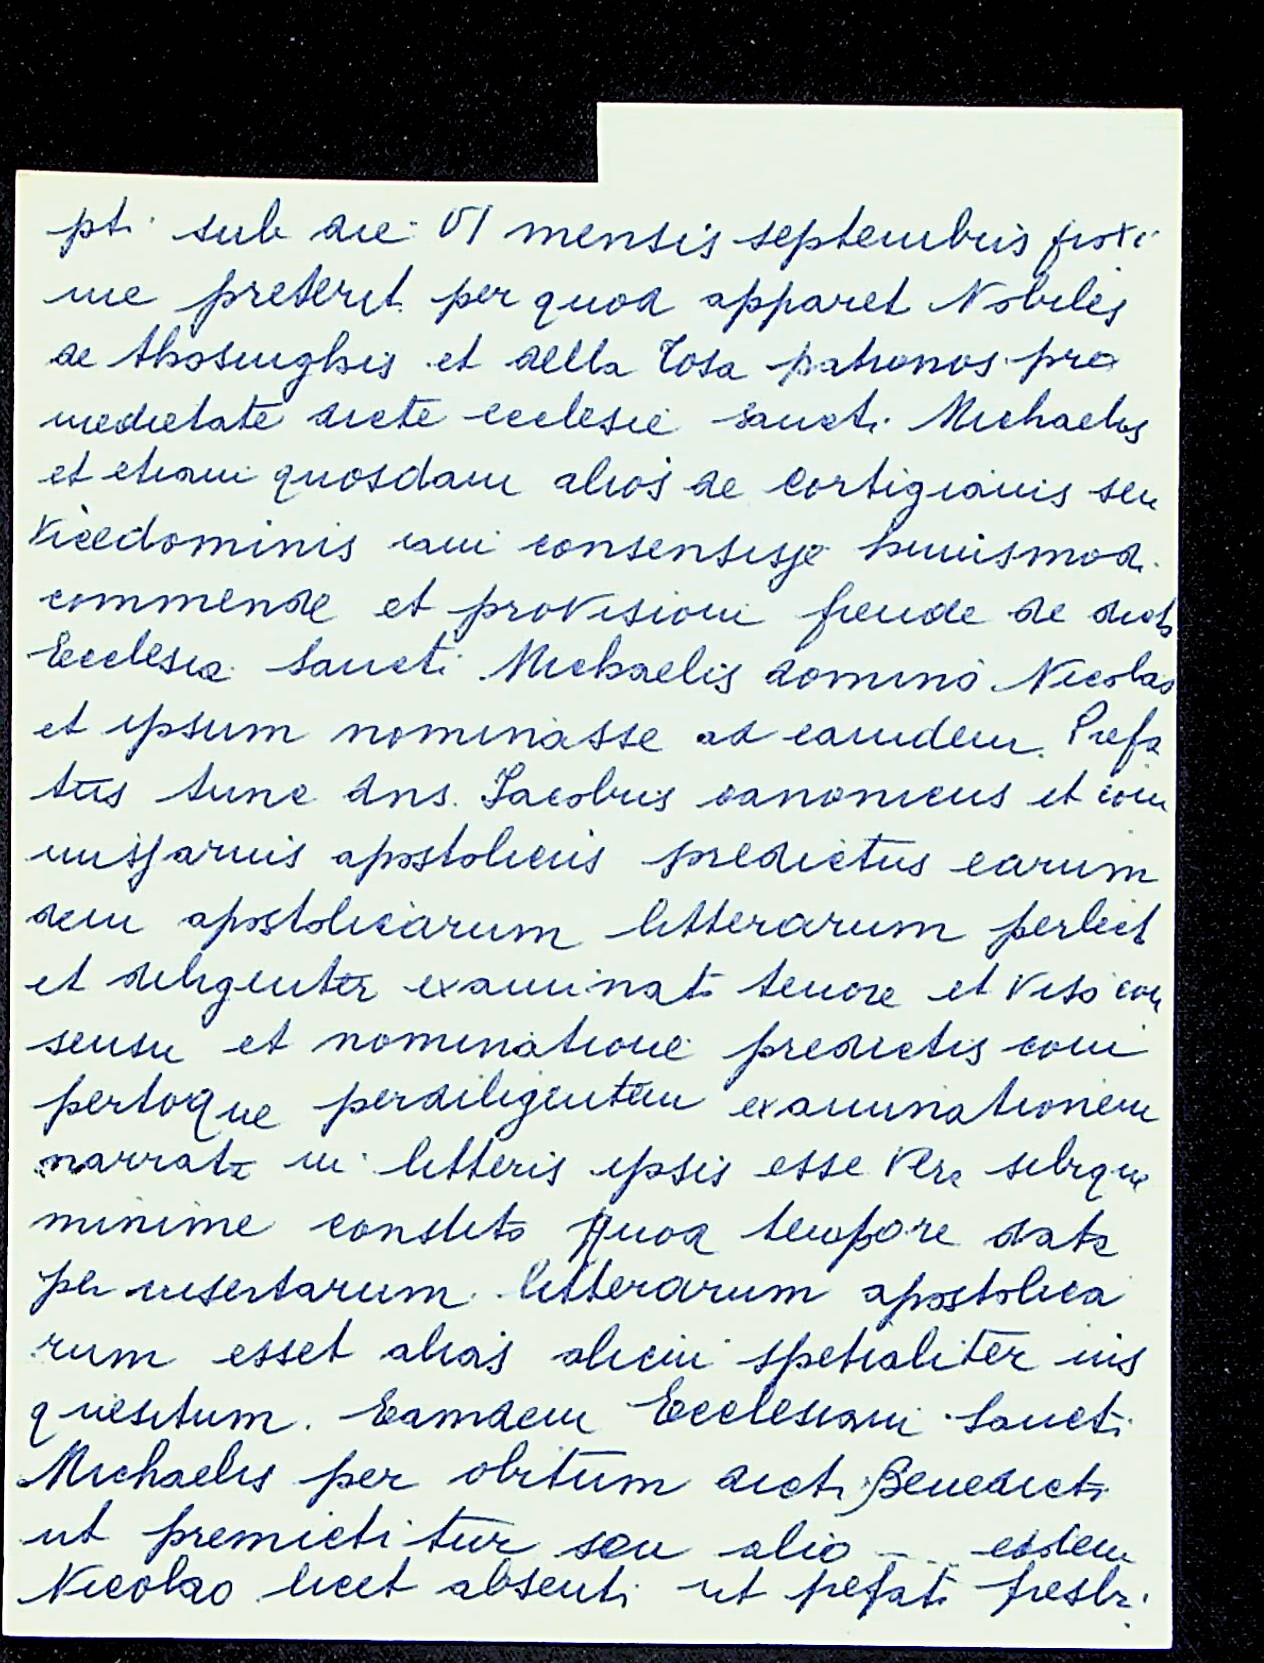 pti sub die VI mensis septembris proxi
me preterit per quod apparet Nobiles
de Thosinghis et della Tosa patronos pro
medietate dicte ecclesie Sancti Michaelis
et etiam quosdam alios de Cortigianis seu
Vicedominis iam consensisse huiusmodi
commende et provisioni fiende de dicta
Ecclesia Sancti Michaelis domino Nicolao
et ipsum nominasse ad eamdem. Prefa
tus tunc dns. Jacobus canonicus et com
missarius apostolicus predictus earum
dem apostolicarum litterarum perlect
et diligenter examinato tenore et viso con
sensu et nominatione predictis com
pertoque per diligentem examinationem
narrata in litteris ipsis esse vera sibique
minime constito quod tempore data
pr insertarum litterarum apostolica
rum esset alias alicui spetialiter ius
quesitum. Eamdem Ecclesiam Sancti
Michaelis per obitum dicti Benedicti
ut premictitur seu alio - ... eidem
Nicolao licet absenti ut prefati presbi